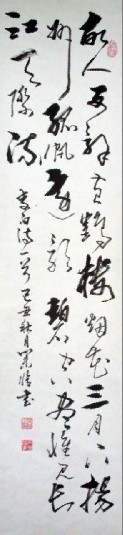 故人西辭黃鶴樓煙花三月下揚
州孤帆遠影碧空盡惟見長
江天際流
李白詩一首己丑秋月書